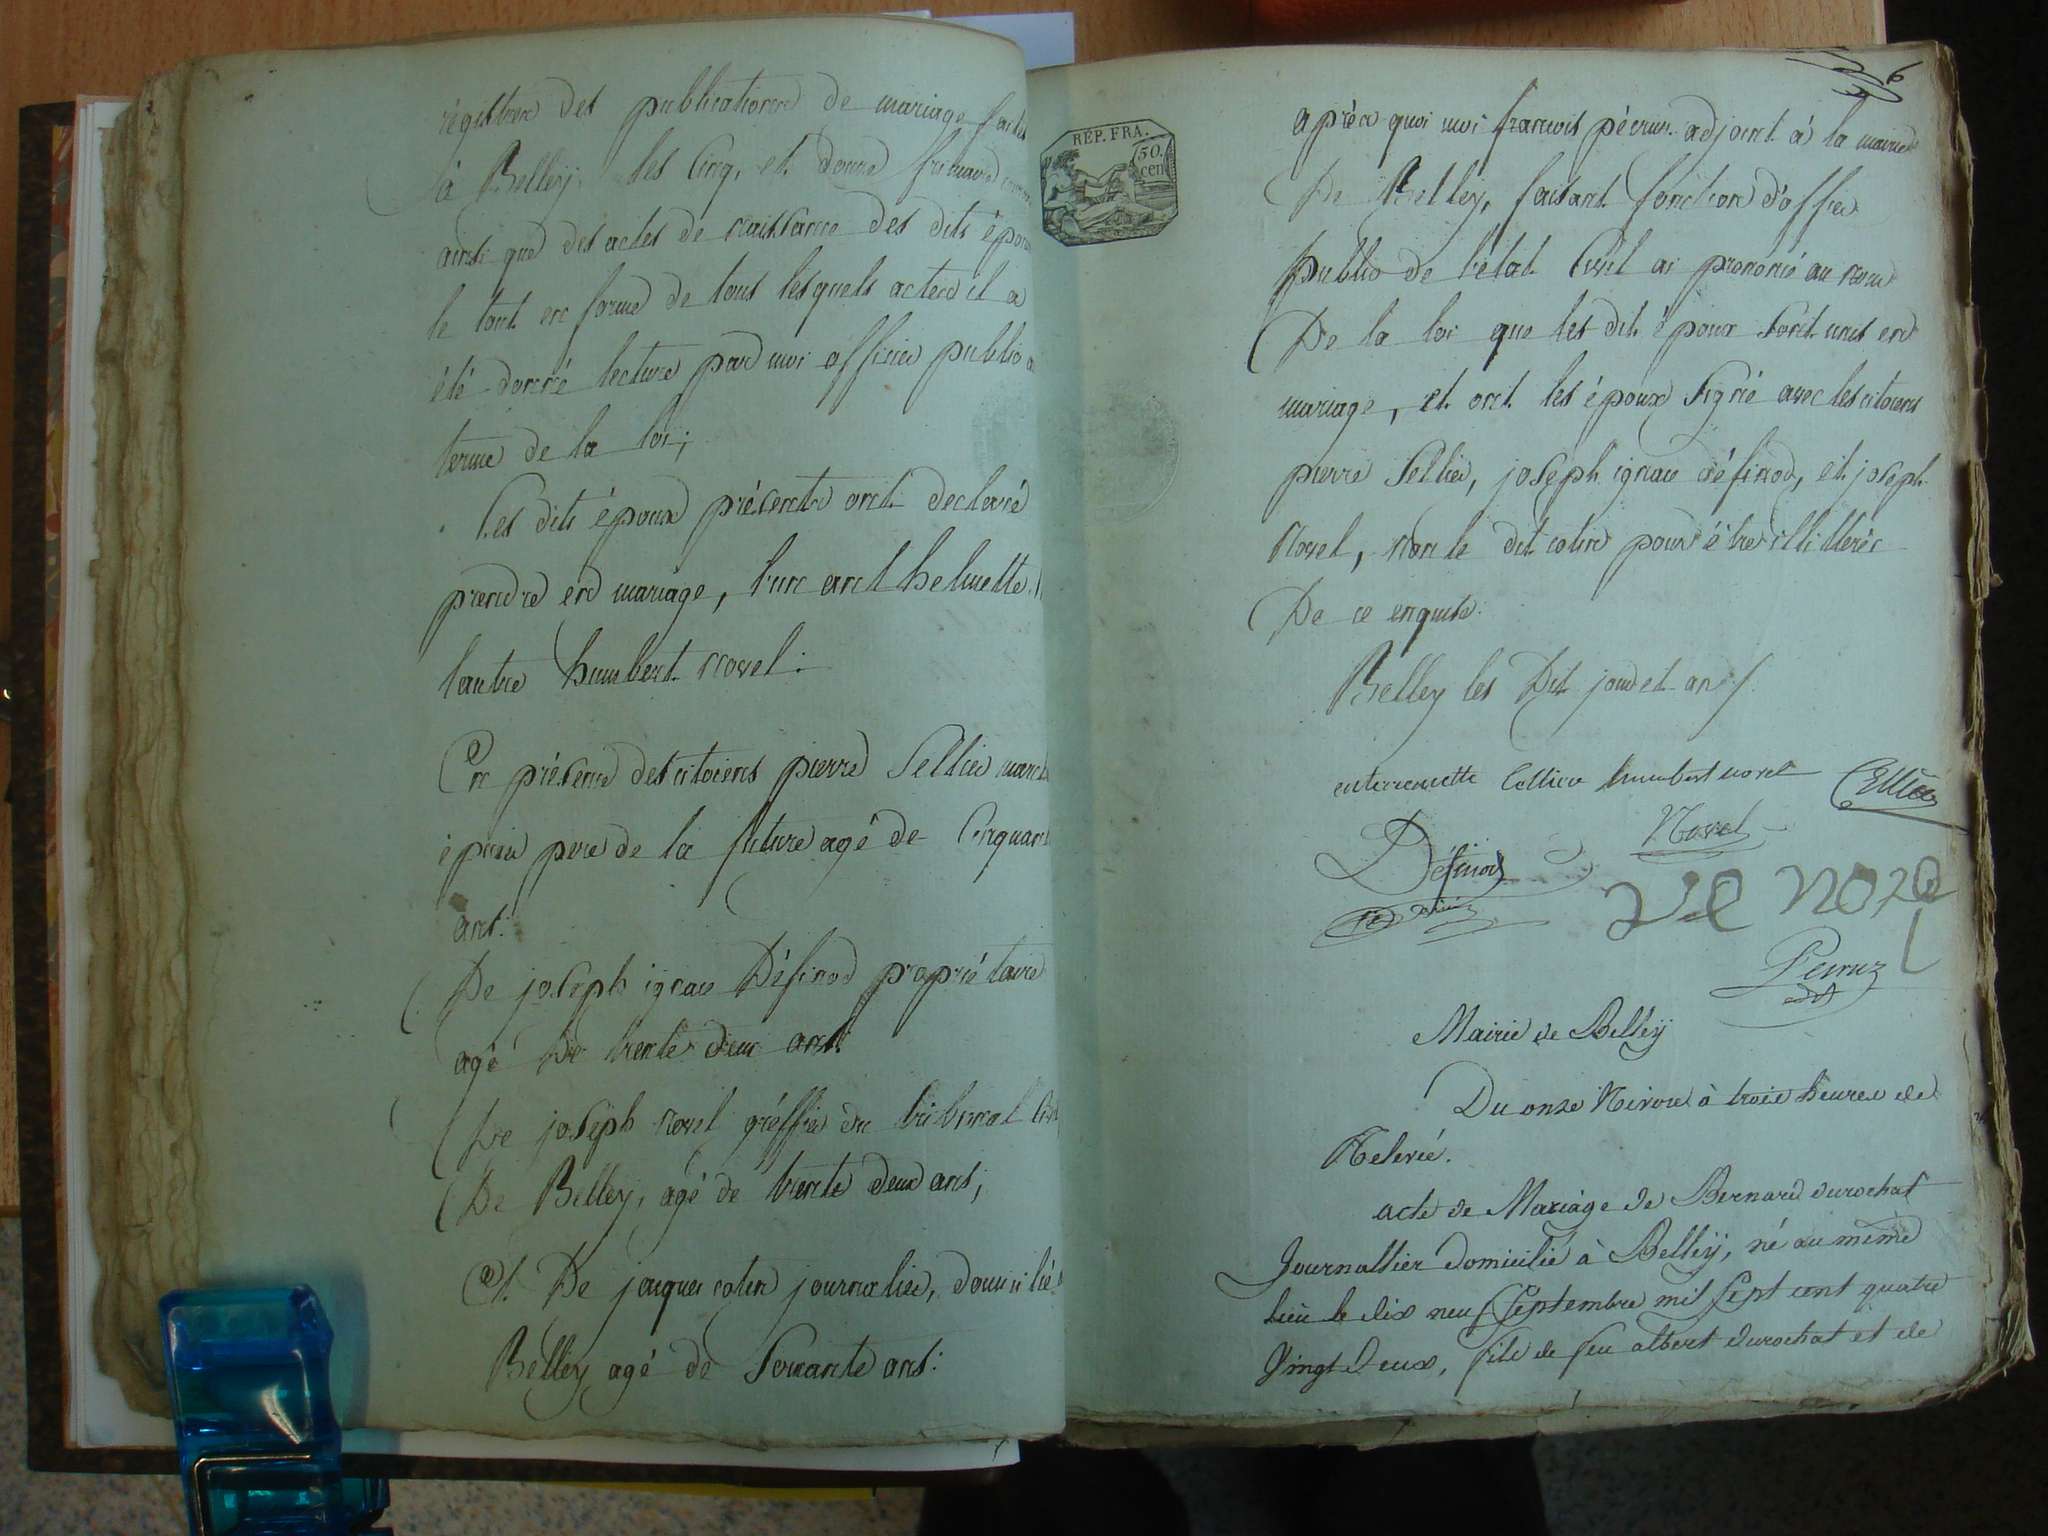 régistres des publications de mariage faites
à Belley, les cinq, et douze frimaire
ainsi que des actes de naissance des dits époux
le tout en forme de tous lesquels actes il a
été donné lecture par moi officier public a
terme de la loi;
Les dits époux présents ont declaré
prendre en mariage, l'un anthelmette
l'autre humbert novel:
En présence des citoiens pierre Sellier
épicier pere de la future agé de Cinquante
ans:
De joseph ignace Définod propriétaire
agé De trente deux ans:
De joseph novel gréffier du tribunal
De Belley, agé de trente deux ans;
et De jacques colin journalier, domicilié
Belley agé de Soixante ans:
6
REP. FRA.
50.
cen
après quoi moi francois pécrux adjoint à la mairie
De Belley, faisant fonction d'officier
public de l'état Civil ai prononcé au nom
De la loi que les dits époux sont unis en
mariage, et ont les époux Signé avec les citoiens
pierre Sellier, joseph ignace définod, et joseph
Novel, non le dit colin pour être illitteré
De ce enquis:
Belley les Dit jour et an /.
humbert novel
Cellier
Novel
Définod
ve novel
Mairie de Belley
Du onze Nivose à trois heures de
Relevée.
acte de Mariage de Bernard durochat
Journallier domicilié à Belley, né au même
lieu le dix neuf Septembre mil sept cent quatre
Vingt Deux, fils de feu albert durochat et de